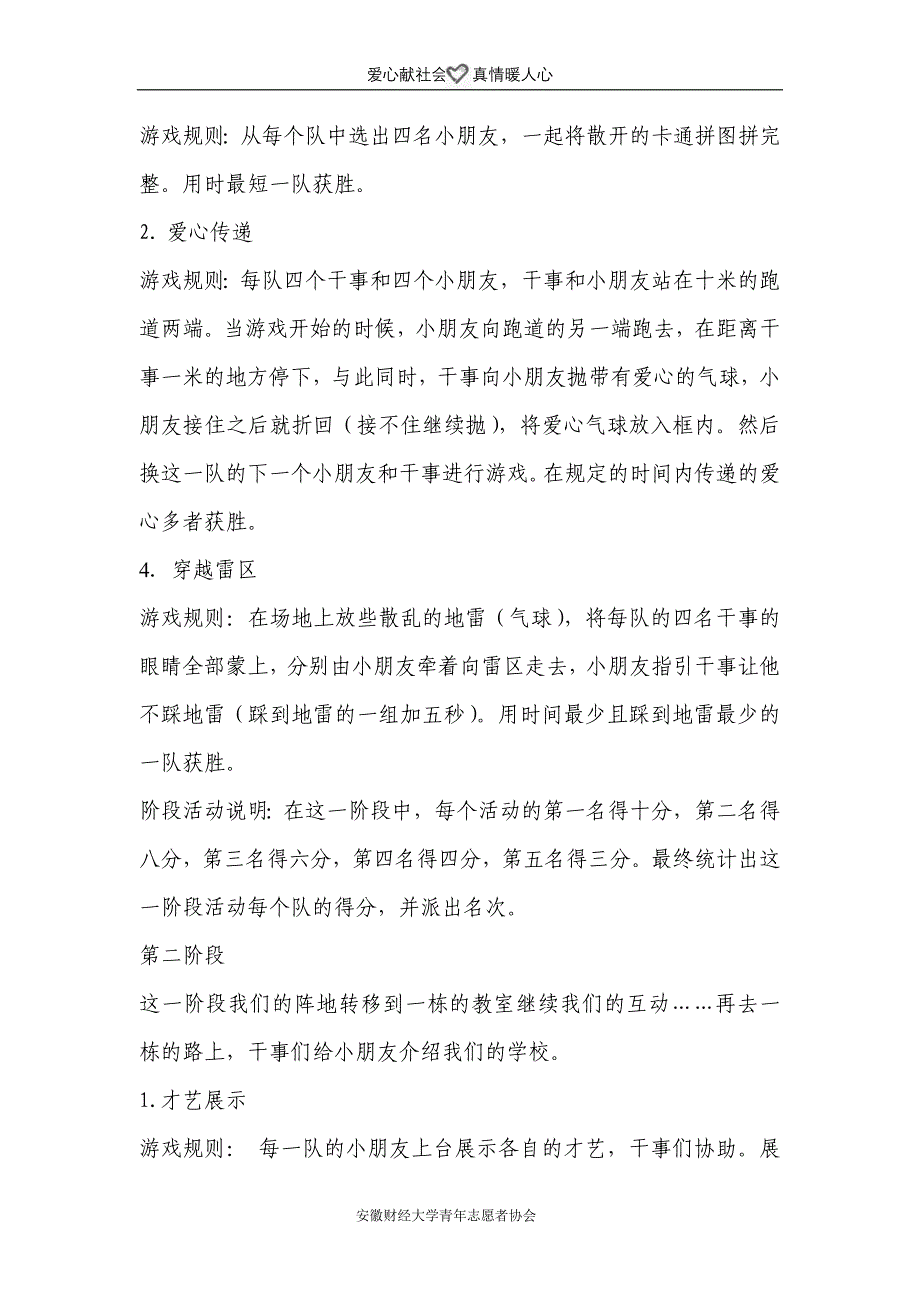 爱心献社会 真情暖人心
游戏规则：从每个队中选出四名小朋友，一起将散开的卡通拼图拼完
整。用时最短一队获胜。
2. 爱心传递
游戏规则：每队四个干事和四个小朋友，干事和小朋友站在十米的跑
道两端。当游戏开始的时候，小朋友向跑道的另一端跑去，在距离干
事一米的地方停下，与此同时，干事向小朋友抛带有爱心的气球，小
朋友接住之后就折回（接不住继续抛），将爱心气球放入框内。然后
换这一队的下一个小朋友和干事进行游戏。在规定的时间内传递的爱
心多者获胜。
4. 穿越雷区
游戏规则：在场地上放些散乱的地雷（气球），将每队的四名干事的
眼睛全部蒙上，分别由小朋友牵着向雷区走去，小朋友指引干事让他
不踩地雷（踩到地雷的一组加五秒）。用时间最少且踩到地雷最少的
一队获胜。
阶段活动说明：在这一阶段中，每个活动的第一名得十分，第二名得
八分，第三名得六分，第四名得四分，第五名得三分。最终统计出这
一阶段活动每个队的得分，并派出名次。
第二阶段
这一阶段我们的阵地转移到一栋的教室继续我们的互动……再去一
栋的路上，干事们给小朋友介绍我们的学校。
1.才艺展示
游戏规则： 每一队的小朋友上台展示各自的才艺，干事们协助。展
安徽财经大学青年志愿者协会